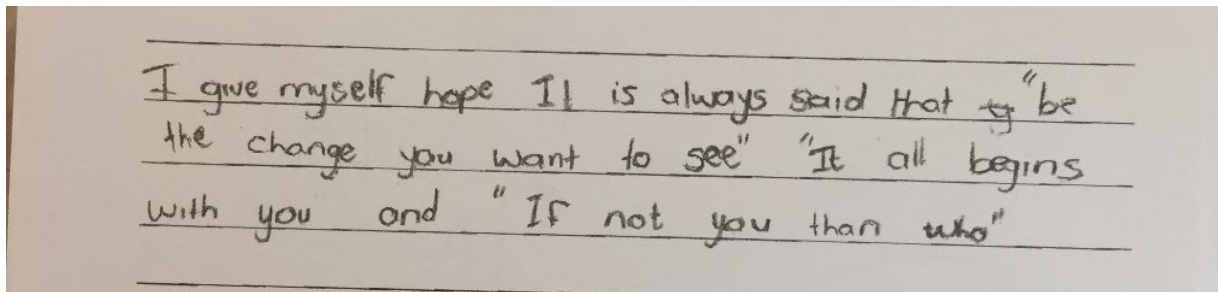 I give myself hope It is always said that "be
the change you want to see" "It all begins
with you and "If not you than who"